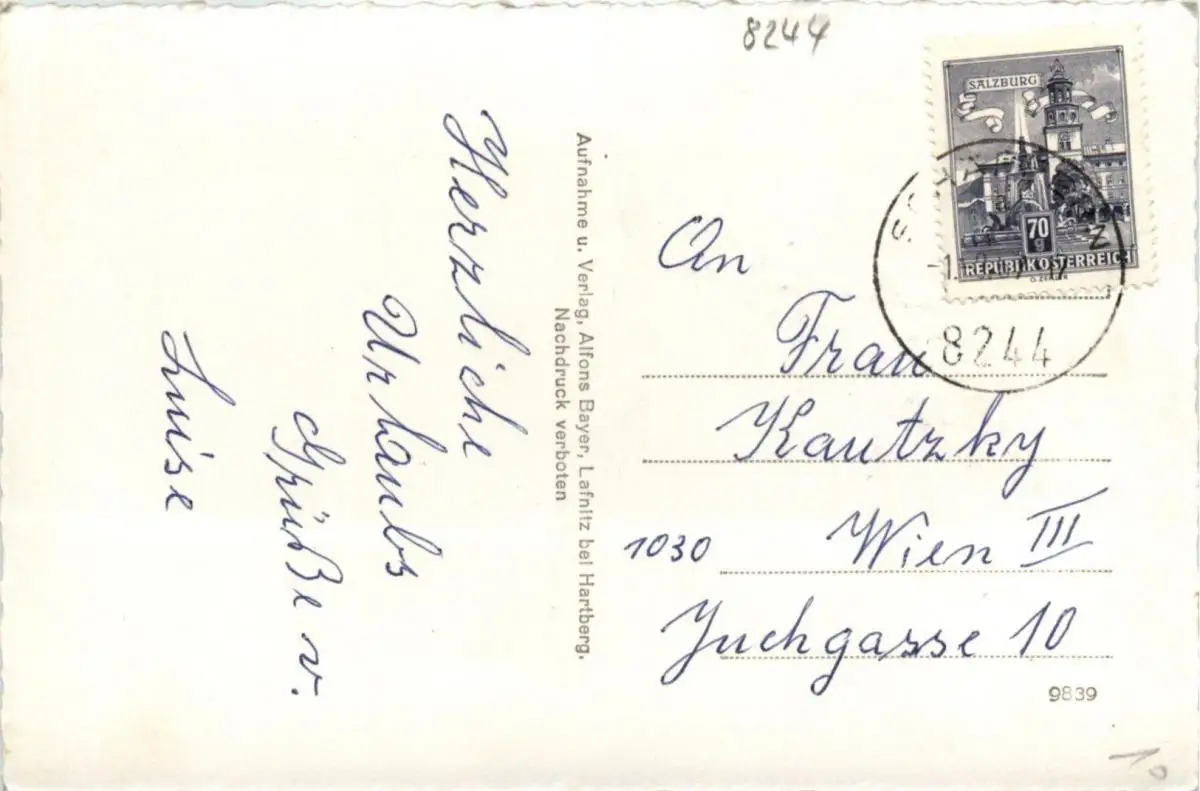 8244
Herzliche
Urlaubs
Grüße v.
Luise
Aufnahme u. Verlag, Alfons Bayer, Lafnitz bei Hartberg.
Nachdruck verboten
SALZBURG
70
g
REPUBLIK ÖSTERREICH
8244
An
Frau
Kautzky
1030 Wien III
Juchgasse 10
9839